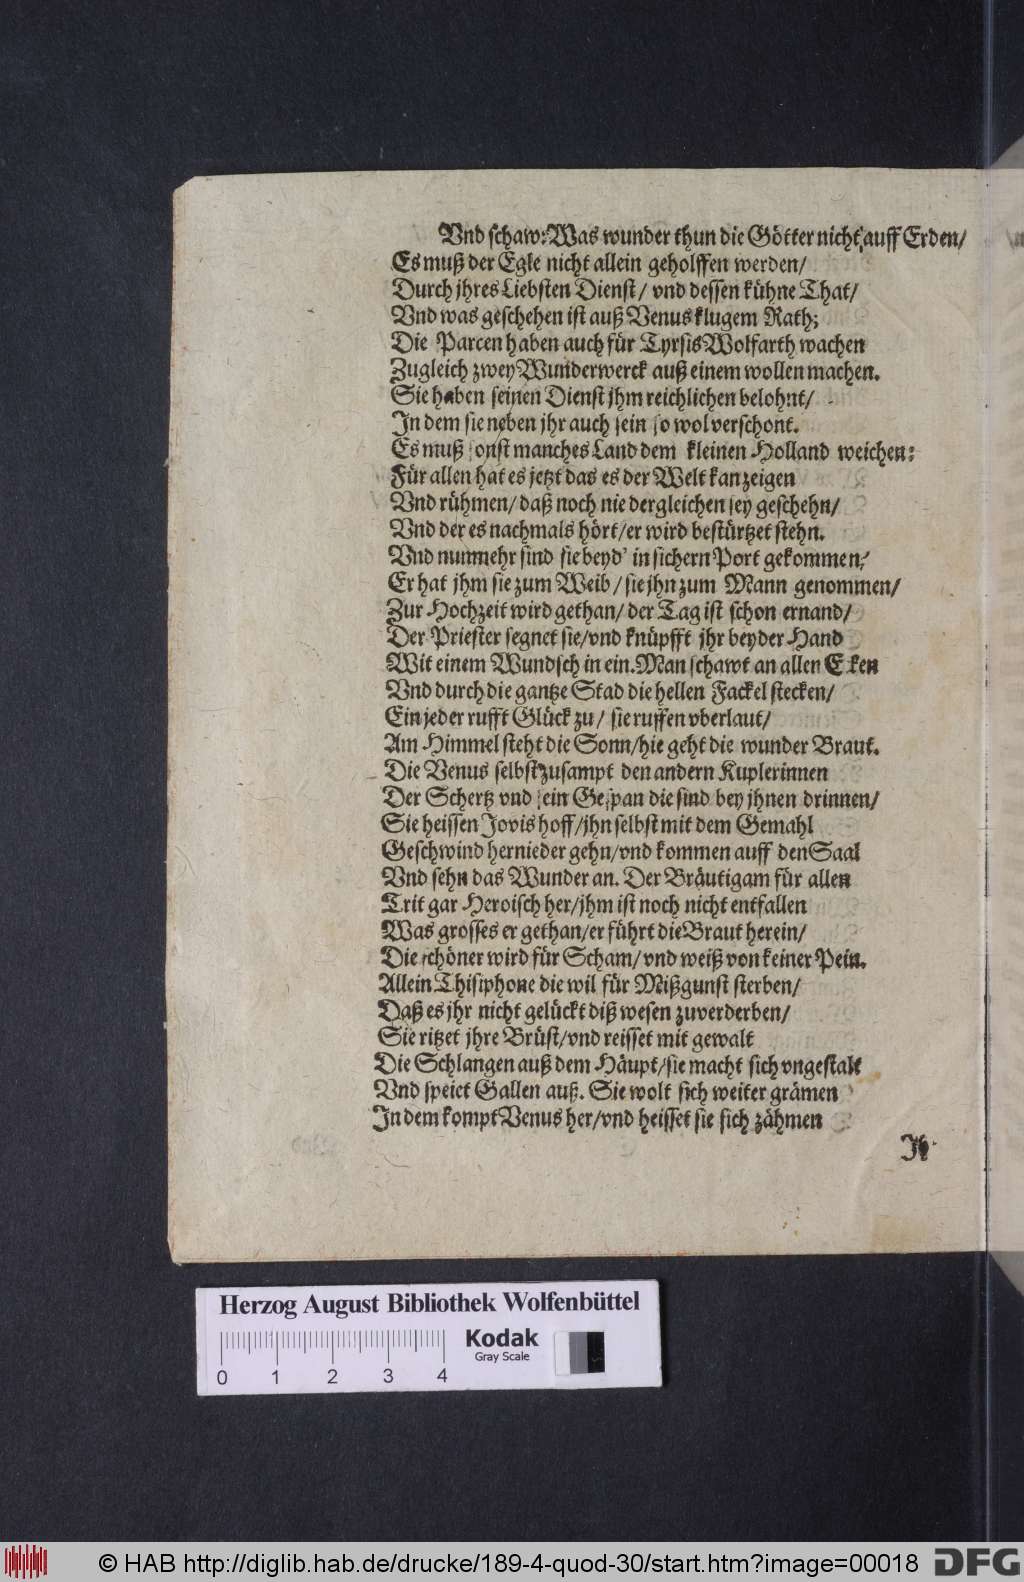 Vnd schaw: Was wunder thun die Götter nicht auff Erden/
Es muß der Egle nicht allein geholffen werden/
Durch jhres Liebsten Dienst/ vnd dessen kühne That/
Vnd was geschehen ist auß Venus klugem Rath;
Die Parcen haben auch für Tyrsis Wolfarth wachen
Zugleich zwey Wunderwerck auß einem wollen machen.
Sie haben seinen Dienst jhm reichlichen belohnt/
In dem sie neben jhr auch sein so wol verschont.
Es muß sonst manches Land dem kleinen Holland weichen:
Für allen hat es jetzt das es der Welt kan zeigen
Vnd rühmen/ daß noch nie dergleichen sey geschehn/
Vnd der es nachmals hört/ er wird bestürtzet stehn.
Vnd nunmehr sind sie beyd' in sichern Port gekommen/
Er hat jhm sie zum Weib/ sie jhn zum Mann genommen/
Zur Hochzeit wird gethan/ der Tag ist schon ernand/
Der Priester segnet sie/ vnd knüpfft jhr beyder Hand
Wit einem Wundsch in ein. Man schawt an allen Eken
Vnd durch die gantze Stad die hellen Fackel stecken/
Ein jeder rufft Glück zu/ sie ruffen vberlaut/
Am Himmel steht die Sonn/ hie geht die wunder Braut.
Die Venus selbst zusampt den andern Kuplerinnen
Der Schertz vnd sein Gespan die sind bey jhnen drinnen/
Sie heissen Jovis hoff/ jhn selbst mit dem Gemahl
Geschwind hernieder gehn/ vnd kommen auff den Saal
Vnd sehn das Wunder an. Der Bräutigam für allen
Trit gar Heroisch her/ jhm ist noch nicht entfallen
Was grosses er gethan/ er führt die Braut herein/
Die schöner wird für Scham/ vnd weiß von keiner Pein.
Allein Thisiphone die wil für Mißgunst sterben/
Daß es jhr nicht gelückt diß wesen zuverderben/
Sie ritzet jhre Brüst/ vnd reisset mit gewalt
Die Schlangen auß dem Häupt/ sie macht sich vngestalt
Vnd speiet Gallen auß. Sie wolt sich weiter grämen
In dem kompt Venus her/ vnd heisset sie sich zähmen
Herzog August Bibliothek Wolfenbüttel
Kodak
Gray Scale
0 1 2 3 4
© HAB http://diglib.hab.de/drucke/189-4-quod-30/start.htm?image=00018
DFG